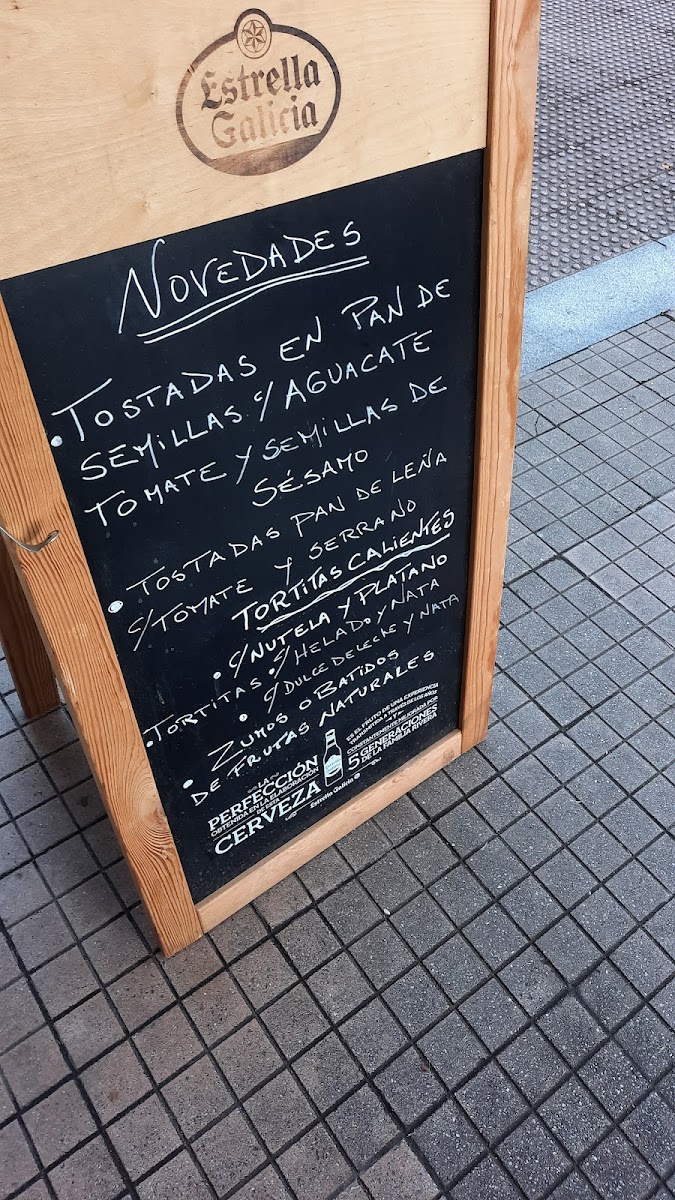 Estrella
Galicia
NOVEDADES
• TOSTADAS EN PAN DE
SEMILLAS C/ AGUACATE
TOMATE Y SEMILLAS DE
SÉSAMO
• TOSTADAS PAN DE LEÑA
C/ TOMATE Y SERRANO
TORTITAS CALIENTES
• C/ NUTELA Y PLATANO
• TORTITAS C/ HELADO Y NATA
• C/ DULCE DE LECHE Y NATA
• ZUMOS O BATIDOS
DE FRUTAS NATURALES
LA
PERFECCIÓN
OBTENIDA EN LA ELABORACIÓN
DE ESTA
CERVEZA
ES EL FRUTO DE UNA EXPERIENCIA
TRANSMITIDA A TRAVÉS DE LOS AÑOS
Y
CONSTANTEMENTE MEJORADA POR
5 GENERACIONES
DE LA FAMILIA RIVERA
Estrella Galicia